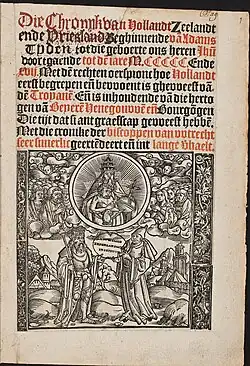 Die Chronyk van Hollandt Zeelandt
ende Vrieslant Beghinnende vā Adams
Tyden tot die geboorte ons heren Jhū
voortgaende tot dē iare M. CCCCC. Ende
xvij. Met dē rechten oerspronc hoe Hollandt
eerst begrepen eñ bewoent is gheweest vā
dē Troyanē. Eñ is inhoudende vā die herto
gen vā Beyerē Henegouwē eñ Bourgōgen
Die tijt dat si ant graefscap geweest hebbē.
Met die cronike der biscoppen van utrecht
seer suuerlic geextēdeert eñ int lange vhaelt.